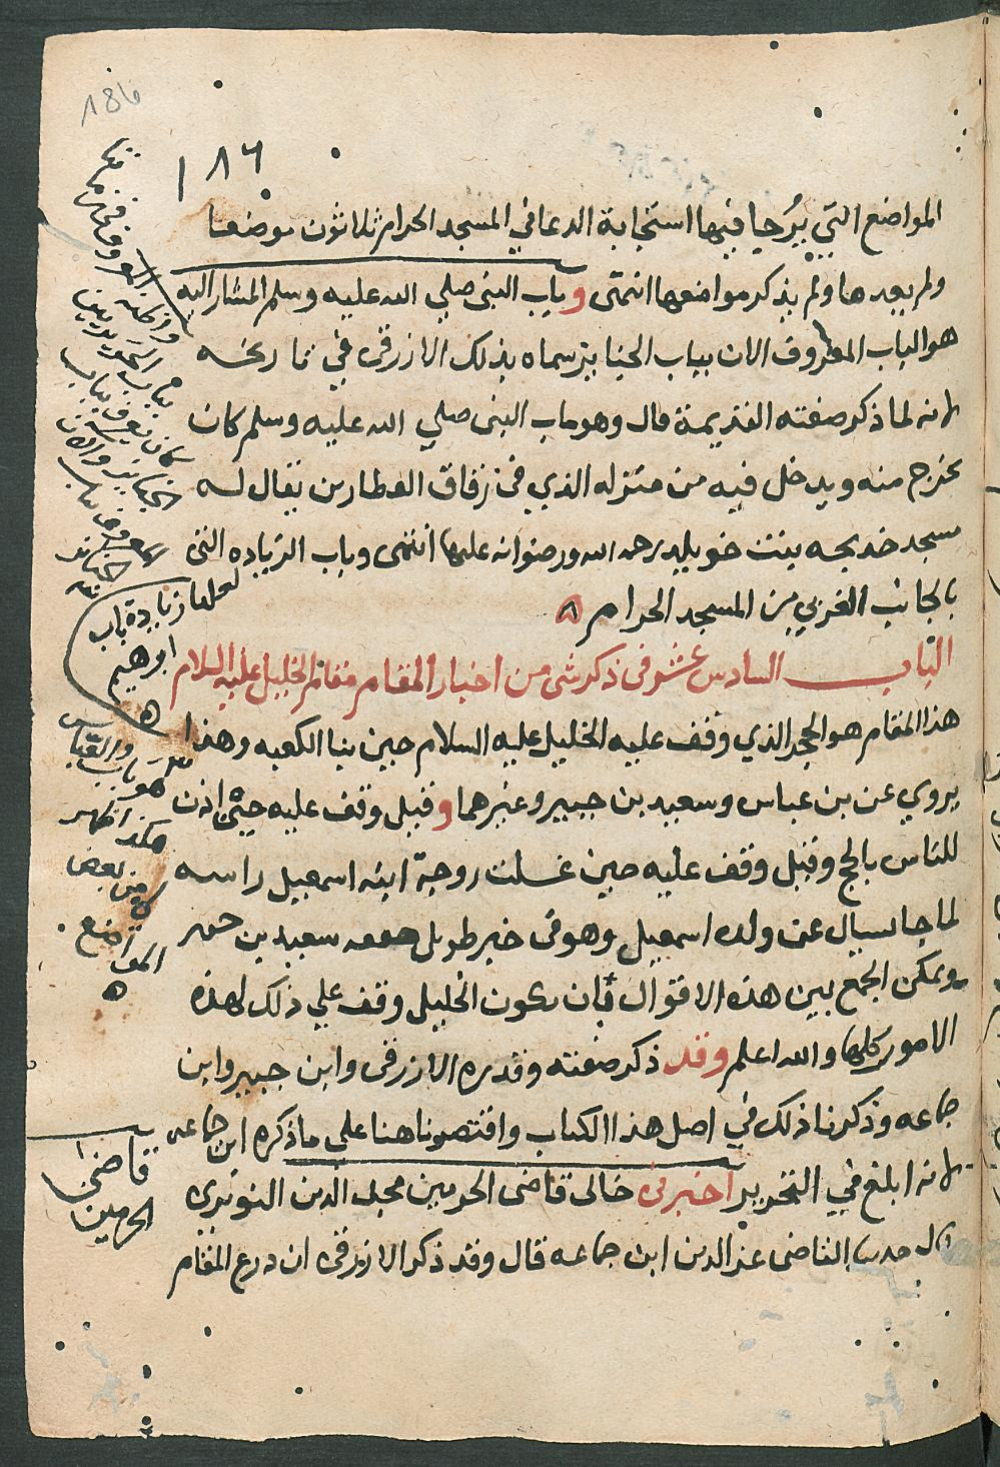 ١٨٦
المواضع التي يرجا فيها استجابة الدعا في المسجد الحرام ثلاثون موضعا
ولم يعدها ولم يذكر مواضعها انتهى وباب النبي صلي الله عليه وسلم المشار اليه
هو الباب المعروف الان بباب الجنايز سماه بذلك الازرقي في تاريخه
لانه لما ذكر صفته القديمة قال وهو باب النبي صلي الله عليه وسلم كان
يخرج منه ويدخل فيه من منزله الذي في زقاق العطارين يقال له
مسجد خديجه بنت خويلد رحمه الله ورضوانه عليها انتهى وباب الزياده التى
بالجانب الغربي من المسجد الحرام
الباب السادس عشر في ذكر شى من اخبار المقام مقام الخليل عليه السلام
هذا المقام هو الحجر الذي وقف عليه الخليل عليه السلام حين بنا الكعبه وهذا
يروي عن بن عباس وسعيد بن جبير وغيرهما وقيل وقف عليه حتى اذن
للناس بالحج وقيل وقف عليه حين غسلت زوجة ابنه اسمعيل راسه
لما جا يسال عن ولده اسمعيل وهو في خبر طويل سعيد بن
ويمكن الجمع بين هذه الاقوال بان يكون الخليل وقف علي ذلك لهذه
الامور كلها والله اعلم وقد ذكر صفته وقدره الازرقى وابن جبير وابن
جماعه وذكرنا ذلك في اصل هذا الكتاب واقتصرنا هنا على ما ذكره ابن جماعه
لانه ابلغ في التحرير اخبرني خالى قاضى الحرمين محب الدين النويرى
القاضى عز الدين ابن جماعه قال وقد ذكر الازرقى ان ذرع المقام
بباب
كان يعرف بباب
الجنايز والان
لعلها زيادة باب
ابرهيم
هكذا ظهر
من بعض
المواضع
قاضى
الحرمين